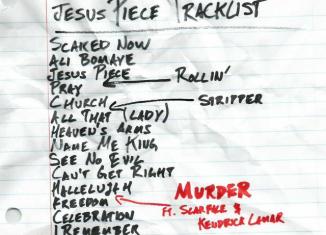 JESUS PIECE TRACKLIST
SCARED NOW
ALI BOMAYE
JESUS PIECE
PRAY
ROLLIN'
CHURCH
STRIPPER
ALL THAT (LADY)
HEAVEN'S ARMS
NAME ME KING
SEE NO EVIL
CAN'T GET RIGHT
HALLELUJAH
FREEDOM
MURDER
FT. SCARFACE &
KENDRICK LAMAR
CELEBRATION
I REMEMBER